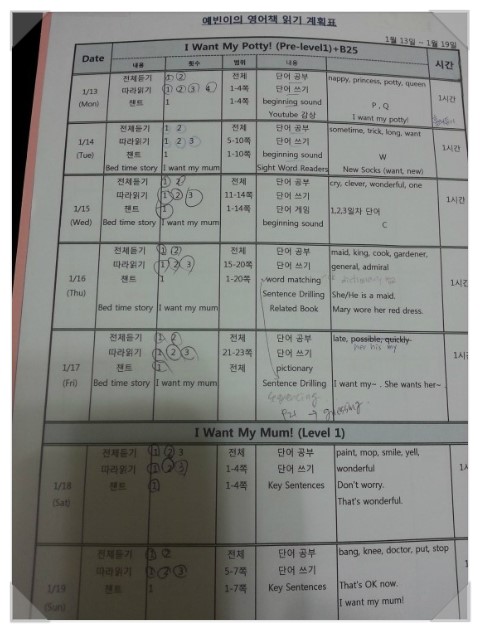 예빈이의 영어책 읽기 계획표
1월 13일 ~ 1월 19일
Date I Want My Potty! (Pre-level1)+B25 시간
내용 횟수 범위 내용
1/13 (Mon)
전체듣기 1 2 전체 단어 공부 happy, princess, potty, queen
따라읽기 1 2 3 4 1-4쪽 단어 쓰기 1시간
챈트 1 1-4쪽 beginning sound P , Q
Youtube 감상 I want my potty!
1/14 (Tue)
전체듣기 1 2 전체 단어 공부 sometime, trick, long, want
따라읽기 1 2 3 5-10쪽 단어 쓰기 1시간
챈트 1 1-10쪽 beginning sound W
Bed time story I want my mum Sight Word Readers New Socks (want, new)
1/15 (Wed)
전체듣기 1 2 전체 단어 공부 cry, clever, wonderful, one
따라읽기 1 2 3 11-14쪽 단어 쓰기 1시간
챈트 1 1-14쪽 단어 게임 1,2,3일자 단어
Bed time story I want my mum beginning sound C
1/16 (Thu)
전체듣기 1 2 전체 단어 공부 maid, king, cook, gardener,
따라읽기 1 2 3 15-20쪽 단어 쓰기 general, admiral
챈트 1 1-20쪽 word matching 1시
Sentence Drilling She/He is a maid.
Bed time story I want my mum Related Book Mary wore her red dress.
1/17 (Fri)
전체듣기 1 2 전체 단어 공부 late, possible, quickly
따라읽기 1 2 3 21-23쪽 단어 쓰기 her his my
챈트 1 전체 pictionary 1시
Bed time story I want my mum Sentence Drilling I want my~ . She wants her~
→ guessing
I Want My Mum! (Level 1)
1/18 (Sat)
전체듣기 1 2 3 전체 단어 공부 paint, mop, smile, yell,
따라읽기 1 2 3 1-4쪽 단어 쓰기 wonderful
챈트 1 1-4쪽 Key Sentences Don't worry.
That's wonderful.
1/19 (Sun)
전체듣기 1 2 전체 단어 공부 bang, knee, doctor, put, stop
따라읽기 1 2 3 5-7쪽 단어 쓰기
챈트 1 1-7쪽 Key Sentences That's OK now.
I want my mum!